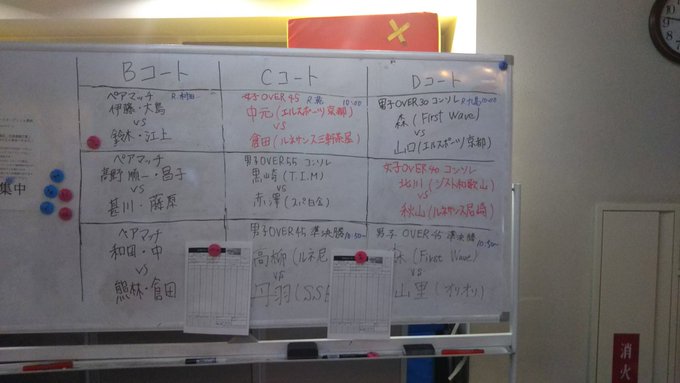 Bコート
ペアマッチ
伊藤・大島
vs
鈴木・江上
ペアマッチ
高野 順一・昌子
vs
甚川・藤原
ペアマッチ
和田・中
vs
熊林・倉田
Cコート
女子OVER45 10:00
中元(エルスポーツ京都)
vs
倉田(ルネサンス三軒茶屋)
男子OVER55 コンソレ
黒崎(T.I.M)
vs
赤澤(スパ白金)
男子OVER45 準決勝 10:50~
高柳(ルネ尼
vs
丹羽(S.S
Dコート
男子OVER30 コンソレ 10:00
森(First Wave)
vs
山口(エルスポーツ京都)
女子OVER40 コンソレ
北川(ジスト和歌山)
vs
秋山(ルネサンス尼崎)
男子 OVER45 準決勝 10:50~
(First Wave)
vs
山里(オリオリ)
集中
消火